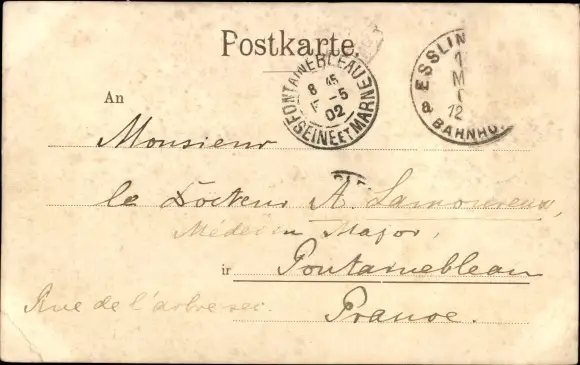 Postkarte.
FONTAINEBLEAU
8 45
-5
02
SEINE ET MARNE
ESSLIN
1
M
12
a BAHNHO
An
Monsieur
le Docteur A. Lamoureux,
Médecin Major,
in Fontainebleau
Rue de l'arbre sec.
France.